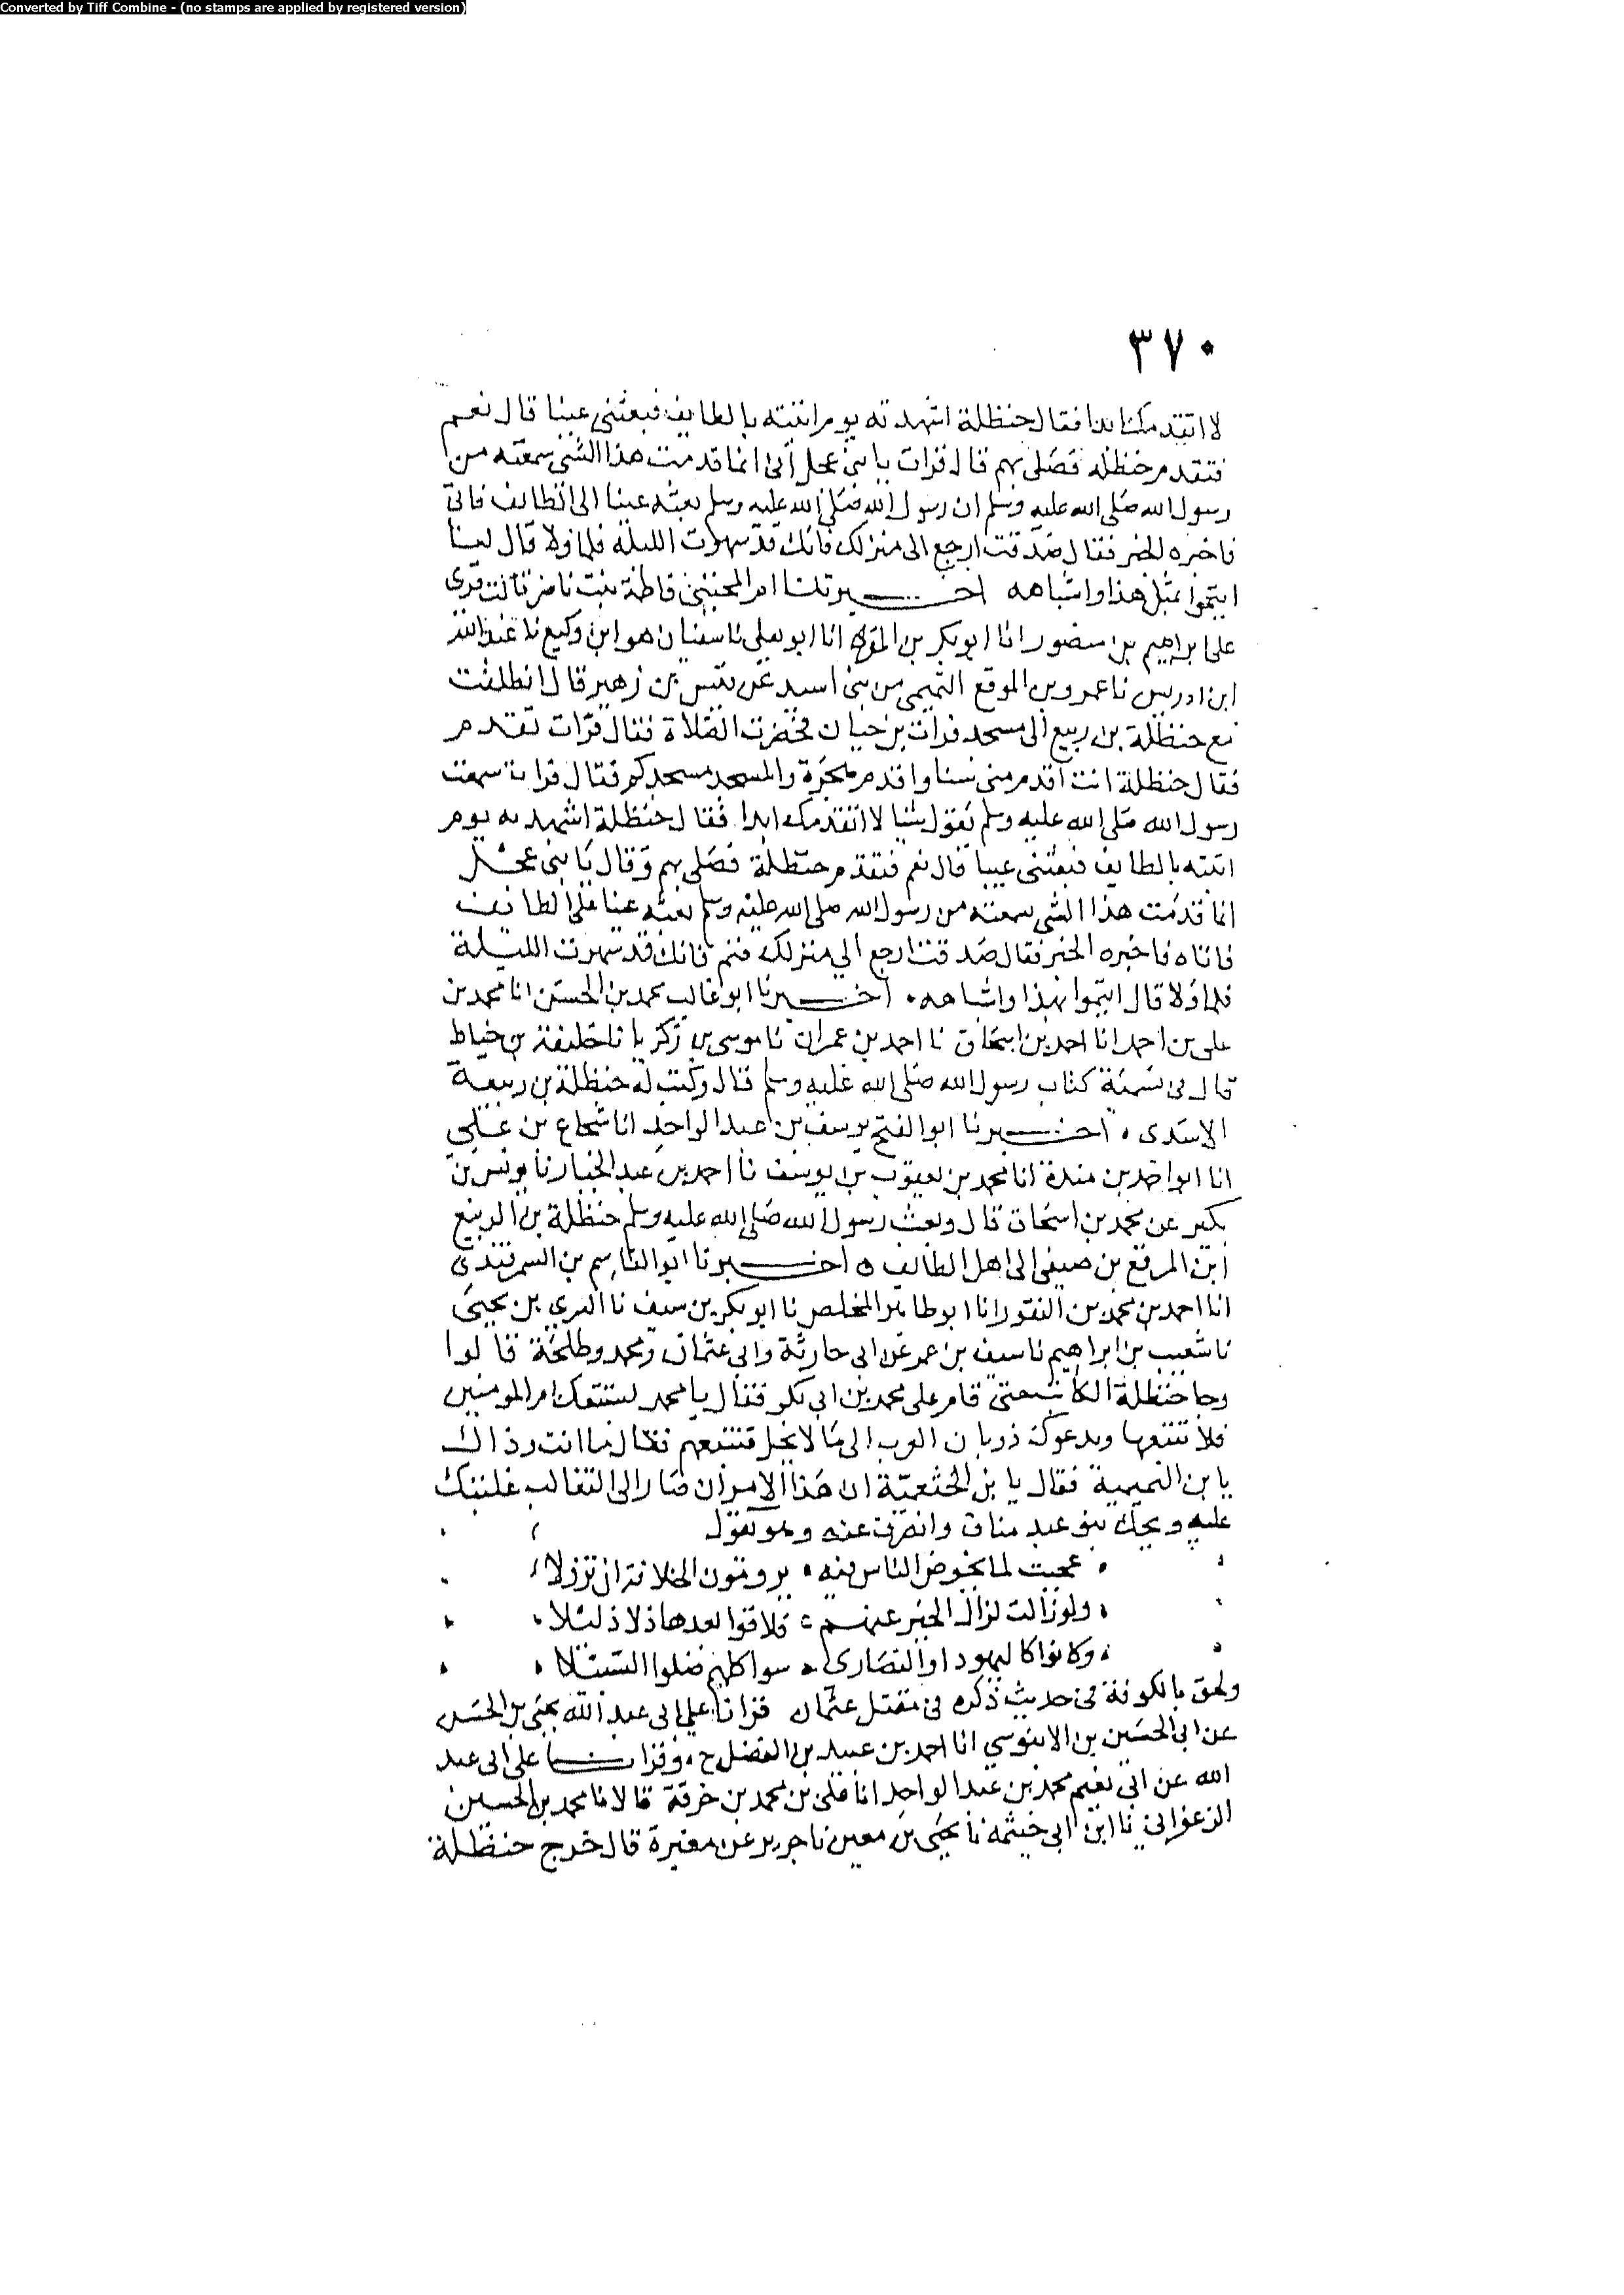 Converted by Tiff Combine - (no stamps are applied by registered version)
٣٧٠
لا اتقدمك ابدا فقال حنظلة اشهدته يوم اتيته بالطايف فبعثنى عينا قال نعم
فتقدم حنظلة فصلى بهم قال فرات يا بنى عجل انى انما قدمت هذا الشى سمعته من
رسول الله صلى الله عليه وسلم ان رسول الله صلى الله عليه وسلم بعثه عينا الى الطائف فاتى
فاخبره الخبر فقال صدقت ارجع الى منزلك فانك قد سهرت الليلة فلما ولا قال لنا
ايتموا بمثل هذا واشباهه اخبرتنا ام المجتبى فاطمة بنت ناصر قالت قرى
على ابراهيم بن منصور انا ابو بكر بن المقرئ انا ابو يعلى نا سفيان هو ابن وكيع نا عبد الله
ابن ادريس نا عمرو بن الموقع التميمى من بنى اسيد عن قيس بن زهير قال انطلقت
مع حنظلة بن ربيع الى مسجد فرات بن حيان فحضرت الصلاة فقال فرات تقدم
فقال حنظلة انت اقدم منى سنا واقدم هجرة والمسجد مسجدكم فقال فرات سمعت
رسول الله صلى الله عليه وسلم يقول شيا لا اتقدمك ابدا فقال حنظلة اشهدته يوم
اتيته بالطايف فبعثنى عينا قال نعم فتقدم حنظلة فصلى بهم وقال يا بنى عجل
انما قدمت هذا الشى سمعته من رسول الله صلى الله عليه وسلم بعثه عينا على الطائف
فاتاه فاخبره الخبر فقال صدقت ارجع الى منزلك فنم فانك قد سهرت الليلة
فلما ولا قال ايتموا بهذا واشباهه . اخبرنا ابو غالب محمد بن الحسن انا محمد بن
على بن احمد انا احمد بن اسحاق نا احمد بن عمران نا موسى بن زكريا نا خليفة بن خياط
قال فى تسمية كتاب رسول الله صلى الله عليه وسلم قال وكتب له حنظلة بن ربيعة
الاسدى . اخبرنا ابو الفتح يوسف بن عبد الواحد انا شجاع بن على
انا ابو عبد الله بن مندة انا محمد بن يعقوب بن يوسف نا احمد بن عبد الجبار نا يونس بن
بكير عن محمد بن اسحاق قال وبعث رسول الله صلى الله عليه وسلم حنظلة بن الربيع
ابن المرقع بن صيفى الى اهل الطائف ه اخبرنا ابو القاسم بن السمرقندى
انا احمد بن محمد بن النقور انا ابو طاهر المخلص نا ابو بكر بن سيف نا السرى بن يحيى
نا شعيب بن ابراهيم نا سيف بن عمر عن ابى حارثة وابى عثمان ومحمد وطلحة قالوا
وجا حنظلة الكاتب حتى قام على محمد بن ابى بكر فقال يا محمد تستتبعك ام المومنين
فلا تتبعها ويدعوك ذوبان العرب الى ما لا يحل فتتبعهم فقال ما انت وذاك
يا بن التميمية فقال يا بن الخثعمية ان هذا الامر ان صار الى التغالب غلبتك
عليه ويحك بنو عبد مناف وانصرف عنه وهو يقول
عجبت لما يخوض الناس فيه . يرومون الخلافة ان تزولا
ولو زالت لزال الخير عنهم . فلاقوا بعدها ذلا ذليلا
وكانوا كاليهود او النصارى . سوا كلهم ضلوا السبيلا
ولحق بالكوفة فى حديث ذكره فى مقتل عثمان قرانا على ابى عبد الله يحيى بن الحسن
عن ابى الحسين بن الابنوسي انا احمد بن عبيد بن الفضل ح . وقرانا على ابى عبد
الله عن ابى نعيم محمد بن عبد الواحد انا على بن محمد بن خزفة قالا نا محمد بن الحسين
الزعفرانى نا ابن ابى خيثمه نا يحيى بن معين نا جرير عن مغيرة قال خرج حنظلة